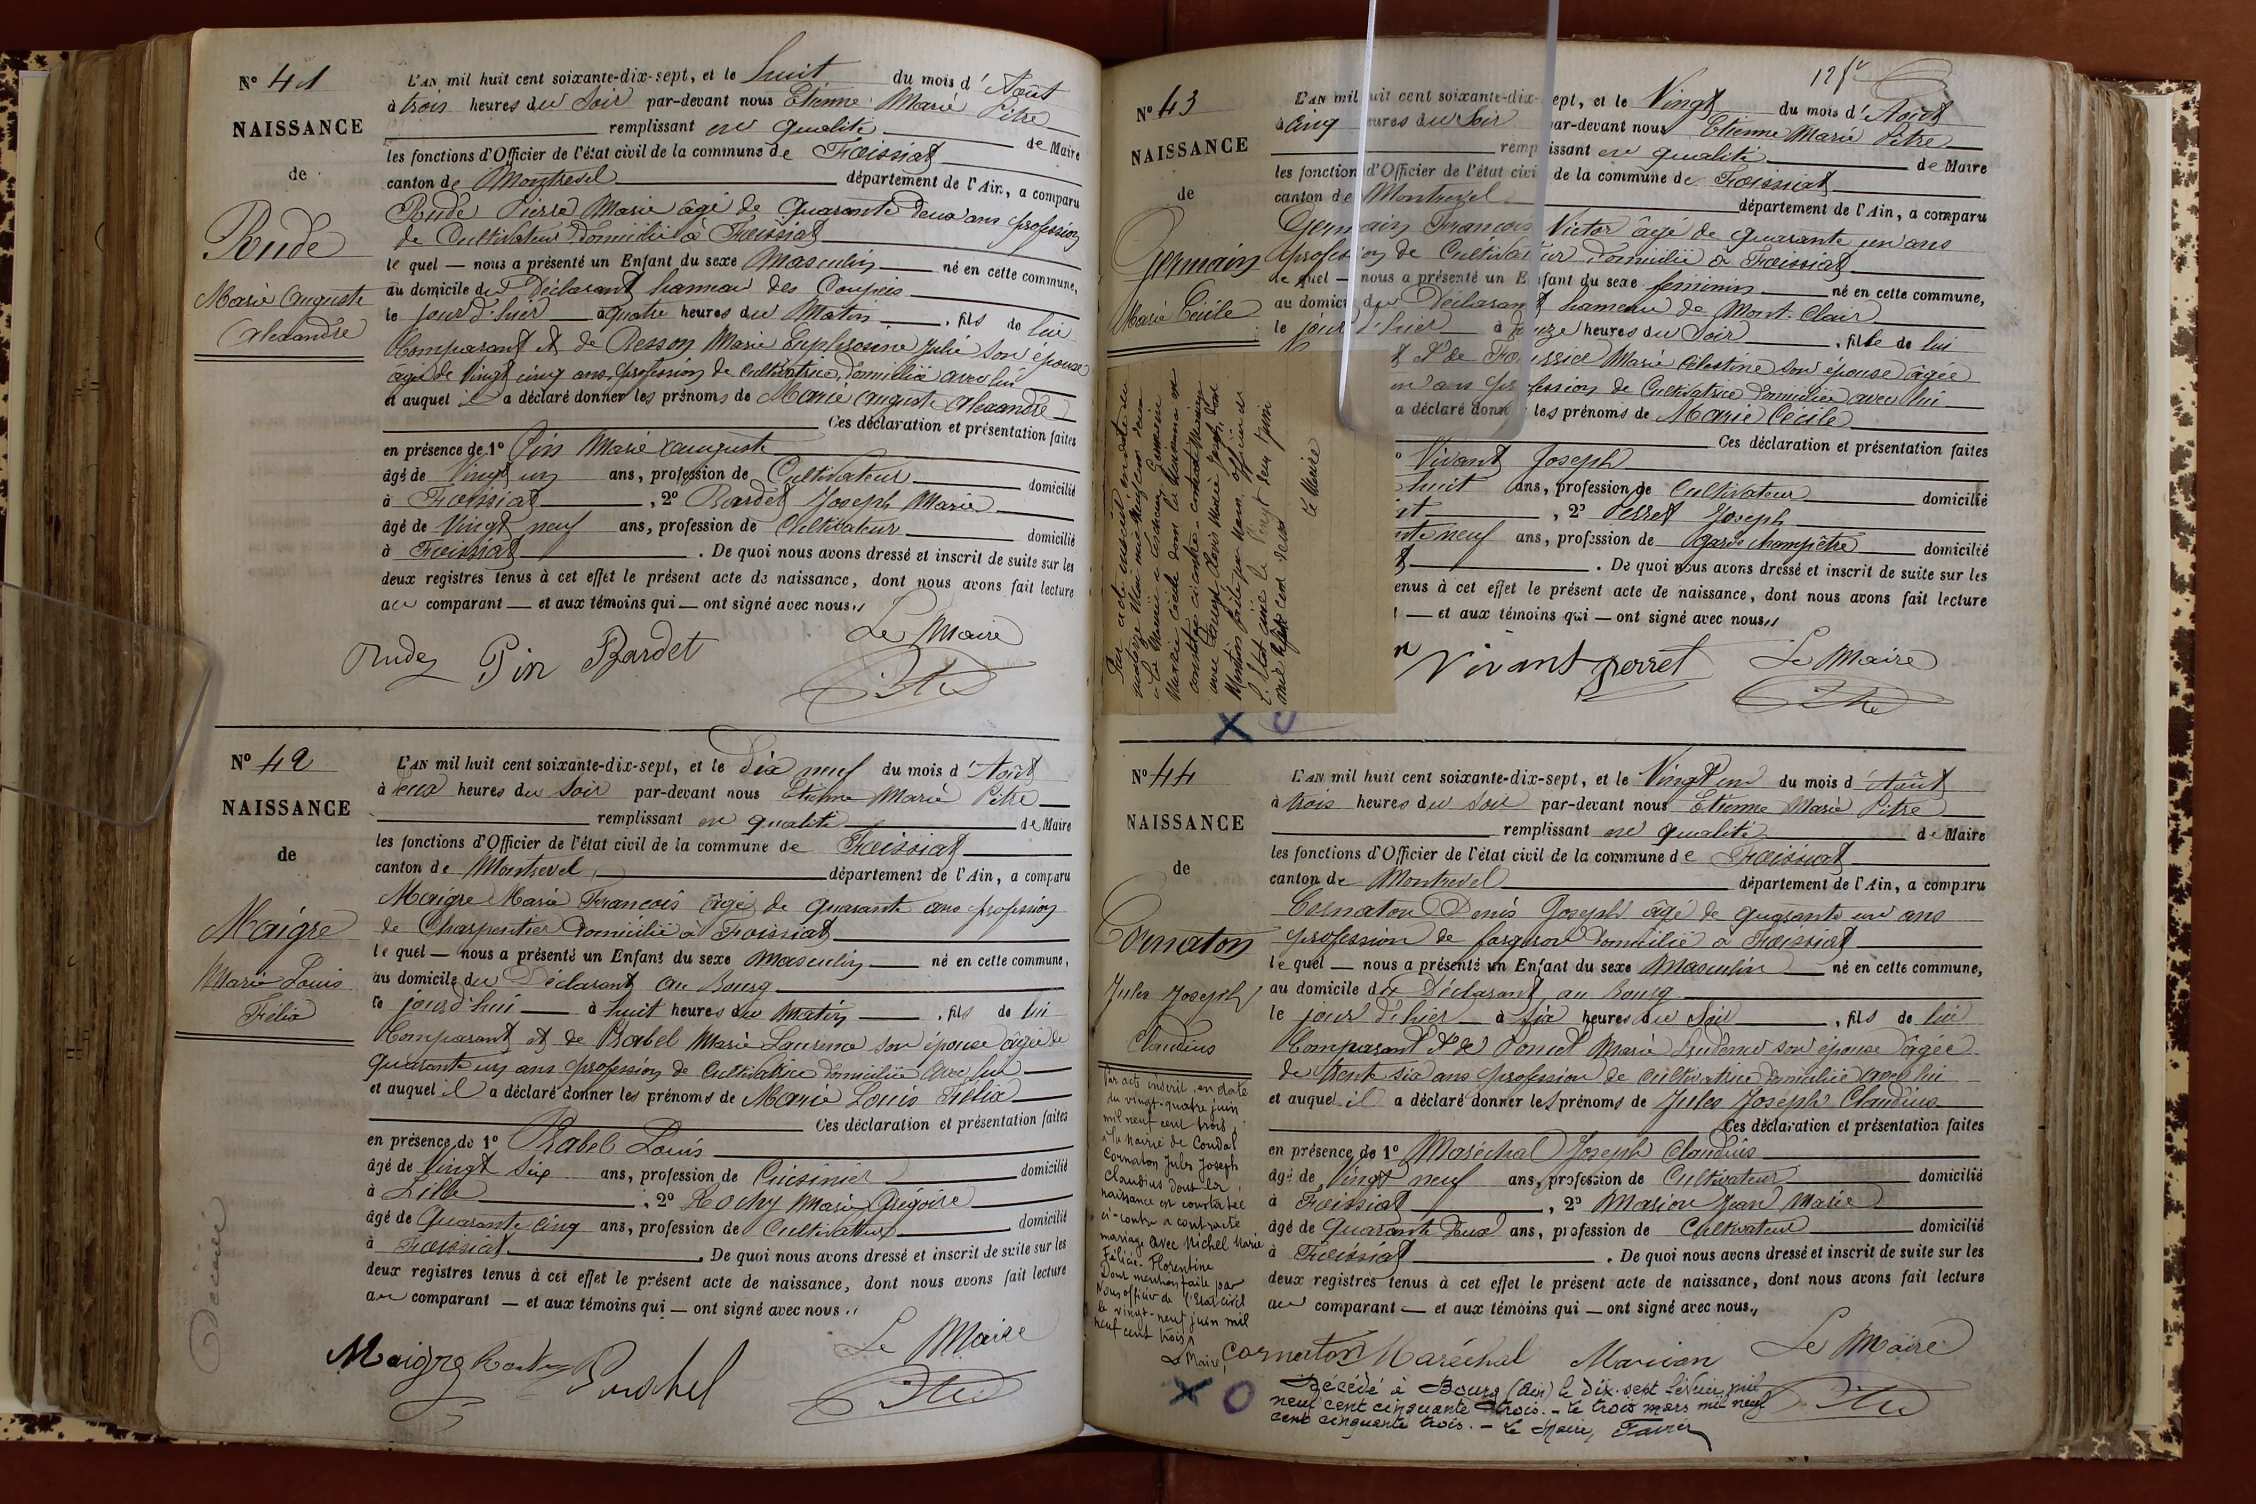 N° 41
NAISSANCE
de
Rude
Marie Auguste
Alexandre
L'AN mil huit cent soixante-dix-sept, et le huit du mois d'Août
à trois heures du Soir par-devant nous Etienne Marie Pitre
remplissant en qualité de Maire
les fonctions d'Officier de l'état civil de la commune de Foissiat
canton de Montrevel département de l'Ain, a comparu
Rude Pierre Marie âgé de quarante deux ans profession
de Cultivateur domicilié à Foissiat
le quel — nous a présenté un Enfant du sexe Masculin né en cette commune,
au domicile du Déclarant hameau des
le jour d'hier à quatre heures du Matin, fils de lui
Comparant et de Resson Marie Euphrosine Julie son épouse
âgée de vingt cinq ans, profession de cultivatrice, domiciliée avec lui
et auquel il a déclaré donner les prénoms de Marie Auguste Alexandre
Ces déclaration et présentation faites
en présence de 1° Pin Marie Auguste
âgé de vingt un ans, profession de Cultivateur domicilié
à Foissiat, 2° Bardet Joseph Marie
âgé de vingt neuf ans, profession de Cultivateur domicilié
à Foissiat. De quoi nous avons dressé et inscrit de suite sur les
deux registres tenus à cet effet le présent acte de naissance, dont nous avons fait lecture
au comparant — et aux témoins qui — ont signé avec nous.
Le Maire
Rude Pin Bardet
N° 42
NAISSANCE
de
Maigre
Marie Louis
Félix
Décédé
L'AN mil huit cent soixante-dix-sept, et le dix neuf du mois d'Août
à deux heures du Soir par-devant nous Etienne Marie Pitre
remplissant en qualité de Maire
les fonctions d'Officier de l'état civil de la commune de Foissiat
canton de Montrevel, département de l'Ain, a comparu
Maigre Marie Francois âgé de quarante ans profession
de Charpentier domicilié à Foissiat
le quel — nous a présenté un Enfant du sexe Masculin né en cette commune,
au domicile du Déclarant au Bourg
le jour d'hui à huit heures du Matin, fils de lui
Comparant et de Rabel Marie Laurence son épouse âgée de
quarante un ans profession de Cultivatrice domiciliée avec lui
et auquel il a déclaré donner les prénoms de Marie Louis Félix
Ces déclaration et présentation faites
en présence de 1° Rabel Louis
âgé de vingt six ans, profession de Cuisinier domicilié
à Lille, 2° Rochy Marie Grégoire
âgé de Quarante cinq ans, profession de Cultivateur domicilié
à Foissiat. De quoi nous avons dressé et inscrit de suite sur les
deux registres tenus à cet effet le présent acte de naissance, dont nous avons fait lecture
au comparant — et aux témoins qui — ont signé avec nous.
Le Maire
Maigre
N° 43
NAISSANCE
de
Germain
Marie Cécile
L'AN mil huit cent soixante-dix-sept, et le Vingt du mois d'Août
à cinq heures du Soir par-devant nous Etienne Marie Pitre
remplissant en qualité de Maire
les fonctions d'Officier de l'état civil de la commune de Foissiat
canton de Montrevel département de l'Ain, a comparu
Germain Francois Victor âgé de quarante un ans
profession de Cultivateur domicilié à Foissiat
le quel — nous a présenté un Enfant du sexe féminin né en cette commune,
au domicile du Déclarant hameau de Mont-Clair
le jour d'hier à onze heures du Soir, fille de lui
et de Marie Célestine son épouse âgée
un ans profession de Cultivatrice domiciliée avec lui
a déclaré donner les prénoms de Marie Cécile
Ces déclaration et présentation faites
Vivant Joseph
huit ans, profession de Cultivateur domicilié
, 2° Perret Joseph
neuf ans, profession de Garde champêtre domicilié
. De quoi nous avons dressé et inscrit de suite sur les
tenus à cet effet le présent acte de naissance, dont nous avons fait lecture
— et aux témoins qui — ont signé avec nous.
Vivant Perret Le Maire
Par acte inscrit en date du
à la Mairie Germain
Marie Cécile dont la naissance est
constatée ci-contre a contracté Mariage
avec Marie Joseph Dont
Mention faite par nous officier de
l'état civil le vingt deux Juin
Le Maire
N° 44
NAISSANCE
de
Cornaton
Jules Joseph
Claudius
L'AN mil huit cent soixante-dix-sept, et le Vingt un du mois d'Août
à trois heures du Soir par-devant nous Etienne Marie Pitre
remplissant en qualité de Maire
les fonctions d'Officier de l'état civil de la commune de Foissiat
canton de Montrevel département de l'Ain, a comparu
Cornaton Denis Joseph âgé de quarante un ans
profession de forgeron domicilié à Foissiat
le quel — nous a présenté un Enfant du sexe Masculin né en cette commune,
au domicile du Déclarant au Bourg
le jour d'hier à six heures du Soir, fils de lui
Comparant et de Poncet Marie Prudence son épouse âgée
de trente six ans profession de cultivatrice domiciliée avec lui
et auquel il a déclaré donner les prénoms de Jules Joseph Claudius
Ces déclaration et présentation faites
en présence de 1° Maréchal Joseph Claudius
âgé de Vingt neuf ans, profession de Cultivateur domicilié
à Foissiat, 2° Marion Jean Marie
âgé de quarante deux ans, profession de Cultivateur domicilié
à Foissiat. De quoi nous avons dressé et inscrit de suite sur les
deux registres tenus à cet effet le présent acte de naissance, dont nous avons fait lecture
au comparant — et aux témoins qui — ont signé avec nous.
Le Maire
Cornaton Maréchal Marion
Par acte inscrit en date
du vingt-quatre juin
mil neuf cent trois,
à la Mairie de Condal
Cornaton Jules Joseph
Claudius dont la
naissance est constatée
ci-contre a contracté
mariage avec Michel Marie
Félicie-Florentine
Dont mention faite par
Nous officier de l'Etat civil
le vingt-neuf juin mil
neuf cent trois
Le Maire
Décédé à Bourg (Ain) le dix-sept février mil
neuf cent cinquante trois. - le trois mars mil neuf
cent cinquante trois. - Le Maire,